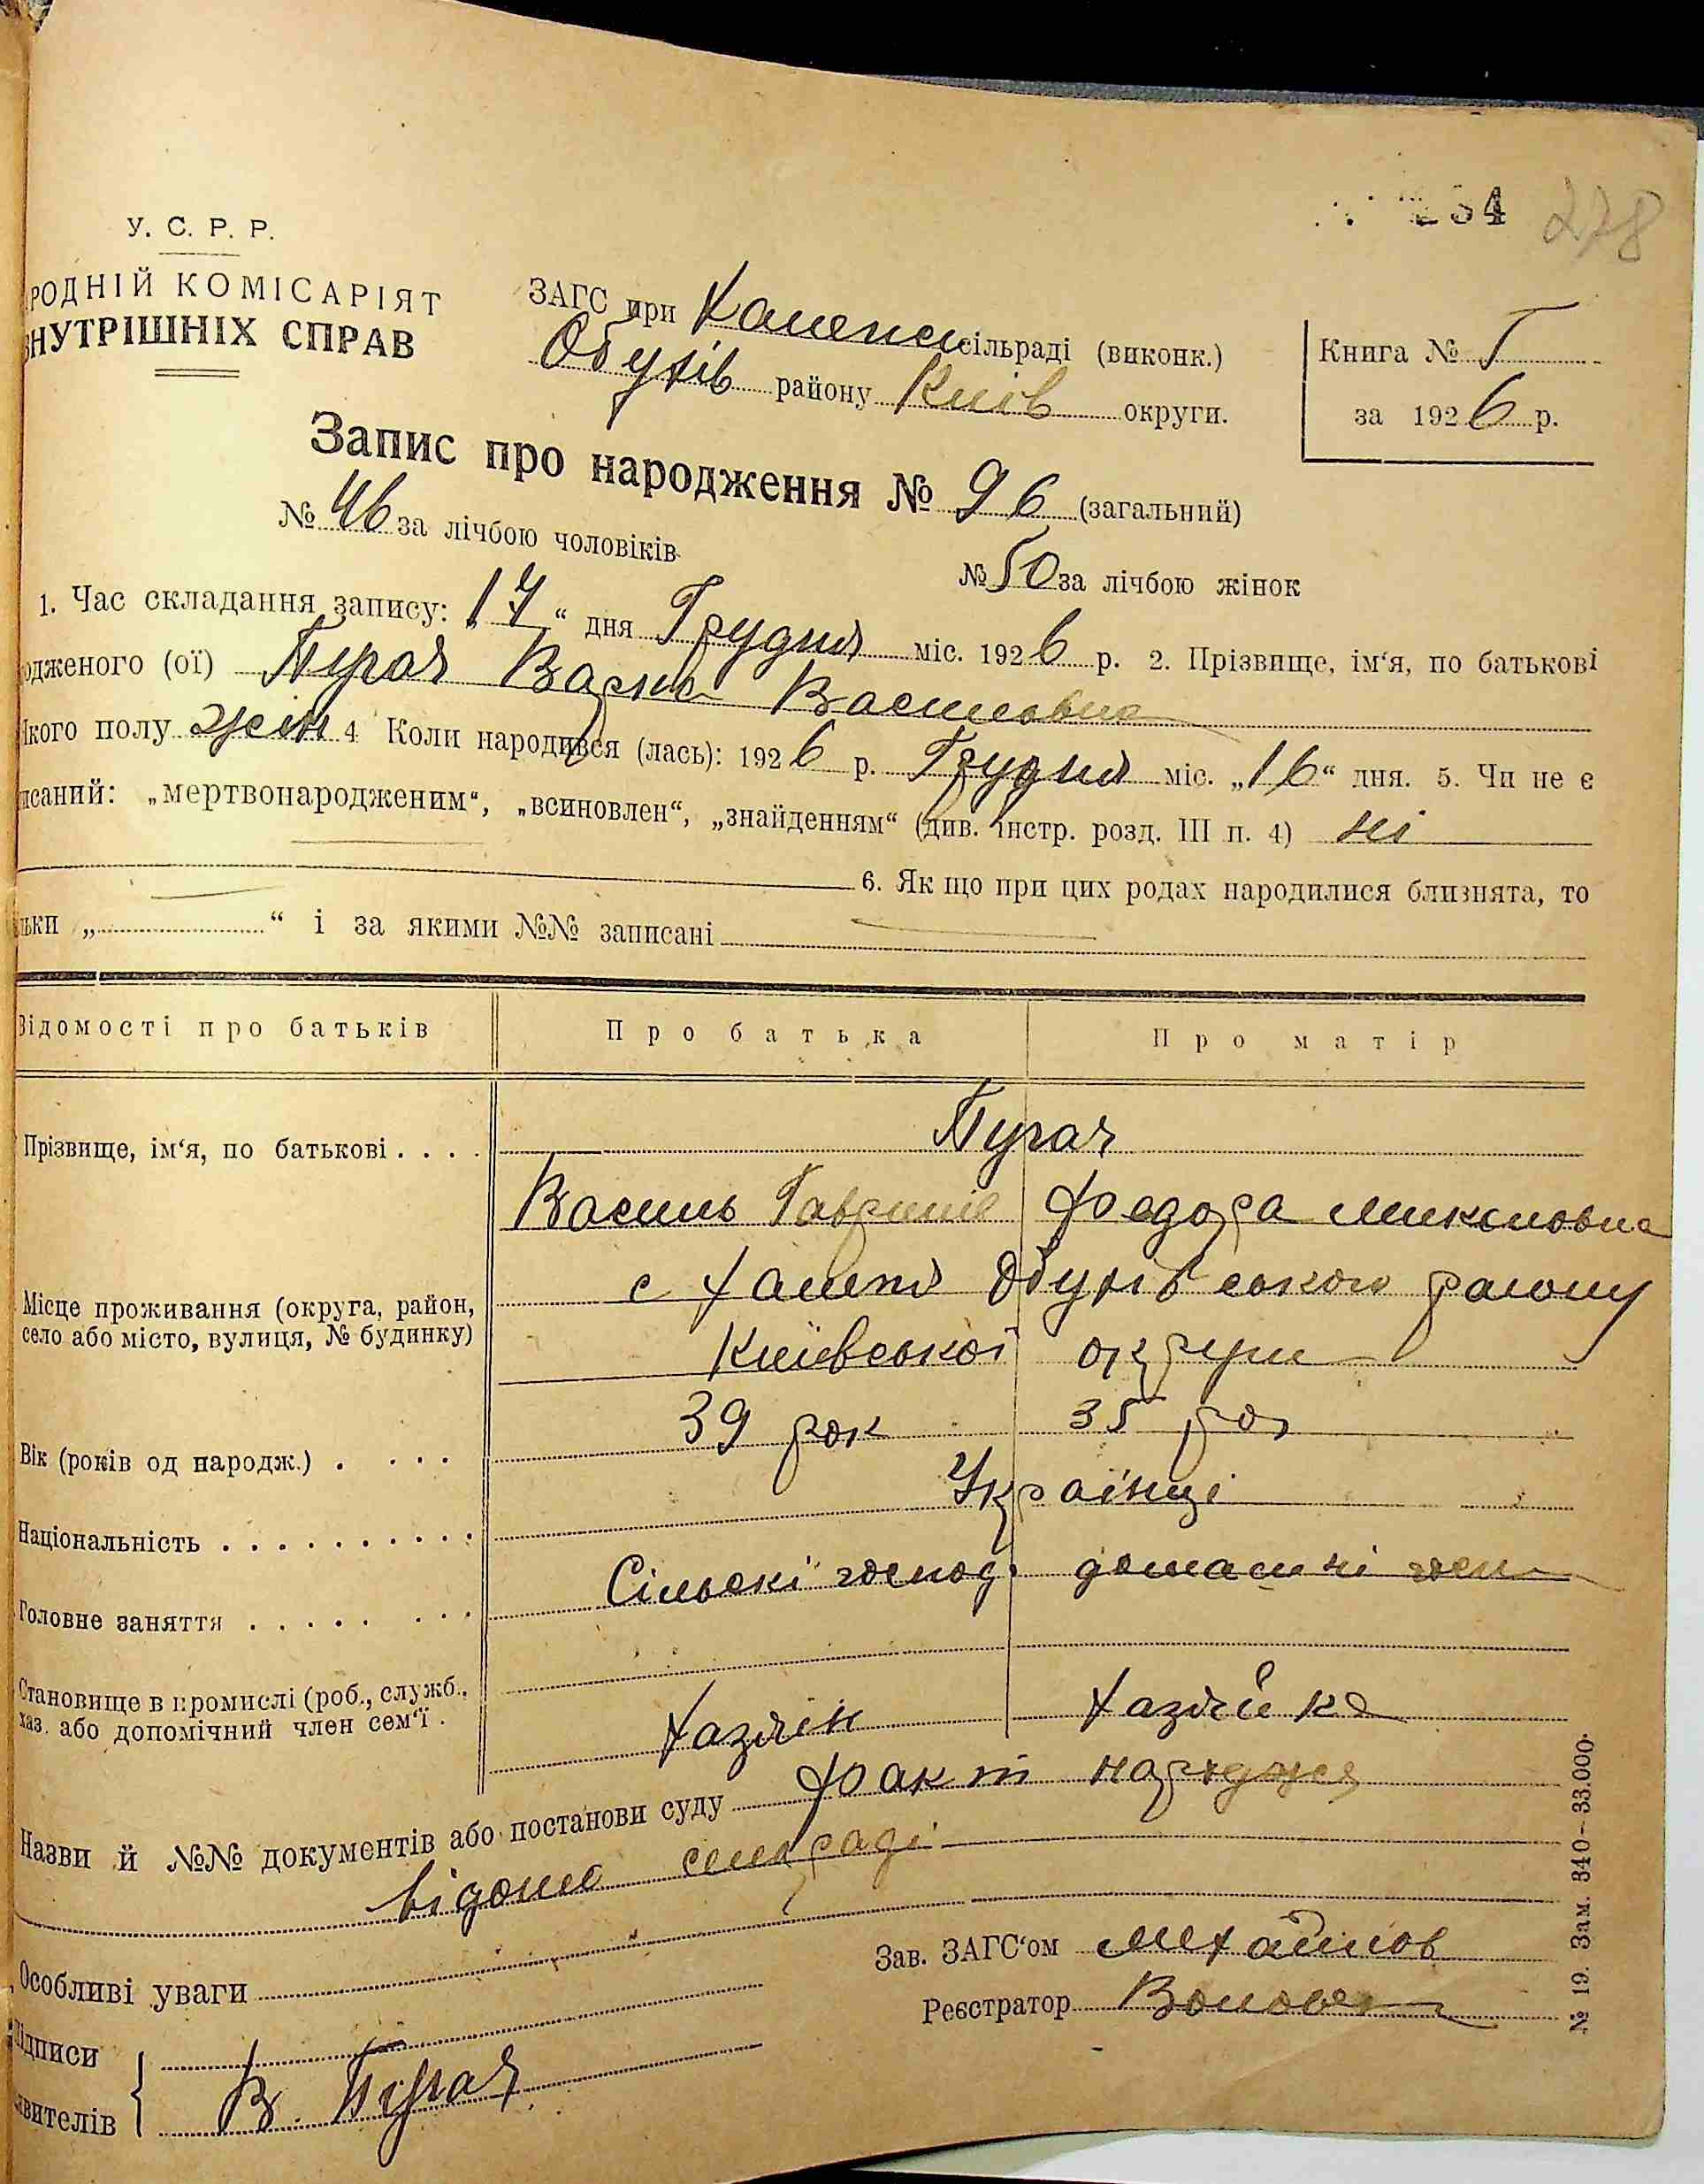 234 278
У. С. Р. Р.
РОДНІЙ КОМІСАРІЯТ
ВНУТРІШНІХ СПРАВ
ЗАГС при сільраді (виконк.)
Обухів району Киів округи.
Книга № I
за 1926 р.
Запис про народження № 96 (загальний)
№ 46 за лічбою чоловіків
№ 50 за лічбою жінок
1. Час складання запису: „17“ дня Грудня міс. 1926 р. 2. Прізвище, ім‘я, по батькові
одженого (ої) Пугач Варка Василовна
якого полу жін 4. Коли народився (лась): 1926 р. Грудня міс. „16“ дня. 5. Чи не є
писаний: „мертвонародженим“, „всиновлен“, „знайденням“ (див. інстр. розд. III п. 4) ні
6. Як що при цих родах народилися близнята, то
льки „ “ і за якими №№ записані
Відомості про батьків Про батька Про матір
Прізвище, ім‘я, по батькові . . . . Пугач
Василь Гаврилів Федора Микиловна
Місце проживання (округа, район, с Халепя Обухівського району
село або місто, вулиця, № будинку) Київської округи
Вік (років од народж.) . . . . 39 рок 35 рок
Національність . . . . . . . . . . Українці
Головне заняття . . . . . . . . Сільскі господ. домашні госп
Становище в промислі (роб., служб.,
хаз. або допомічний член сем‘ї . Хазяїн Хазяйка
Назви й №№ документів або постанови суду факт народжен
відомо сельраді
Особливі уваги
Зав. ЗАГС‘ом Михайлов
Реєстратор
Підписи
явителів В. Пугач
№ 19. Зам. 340–33.000.